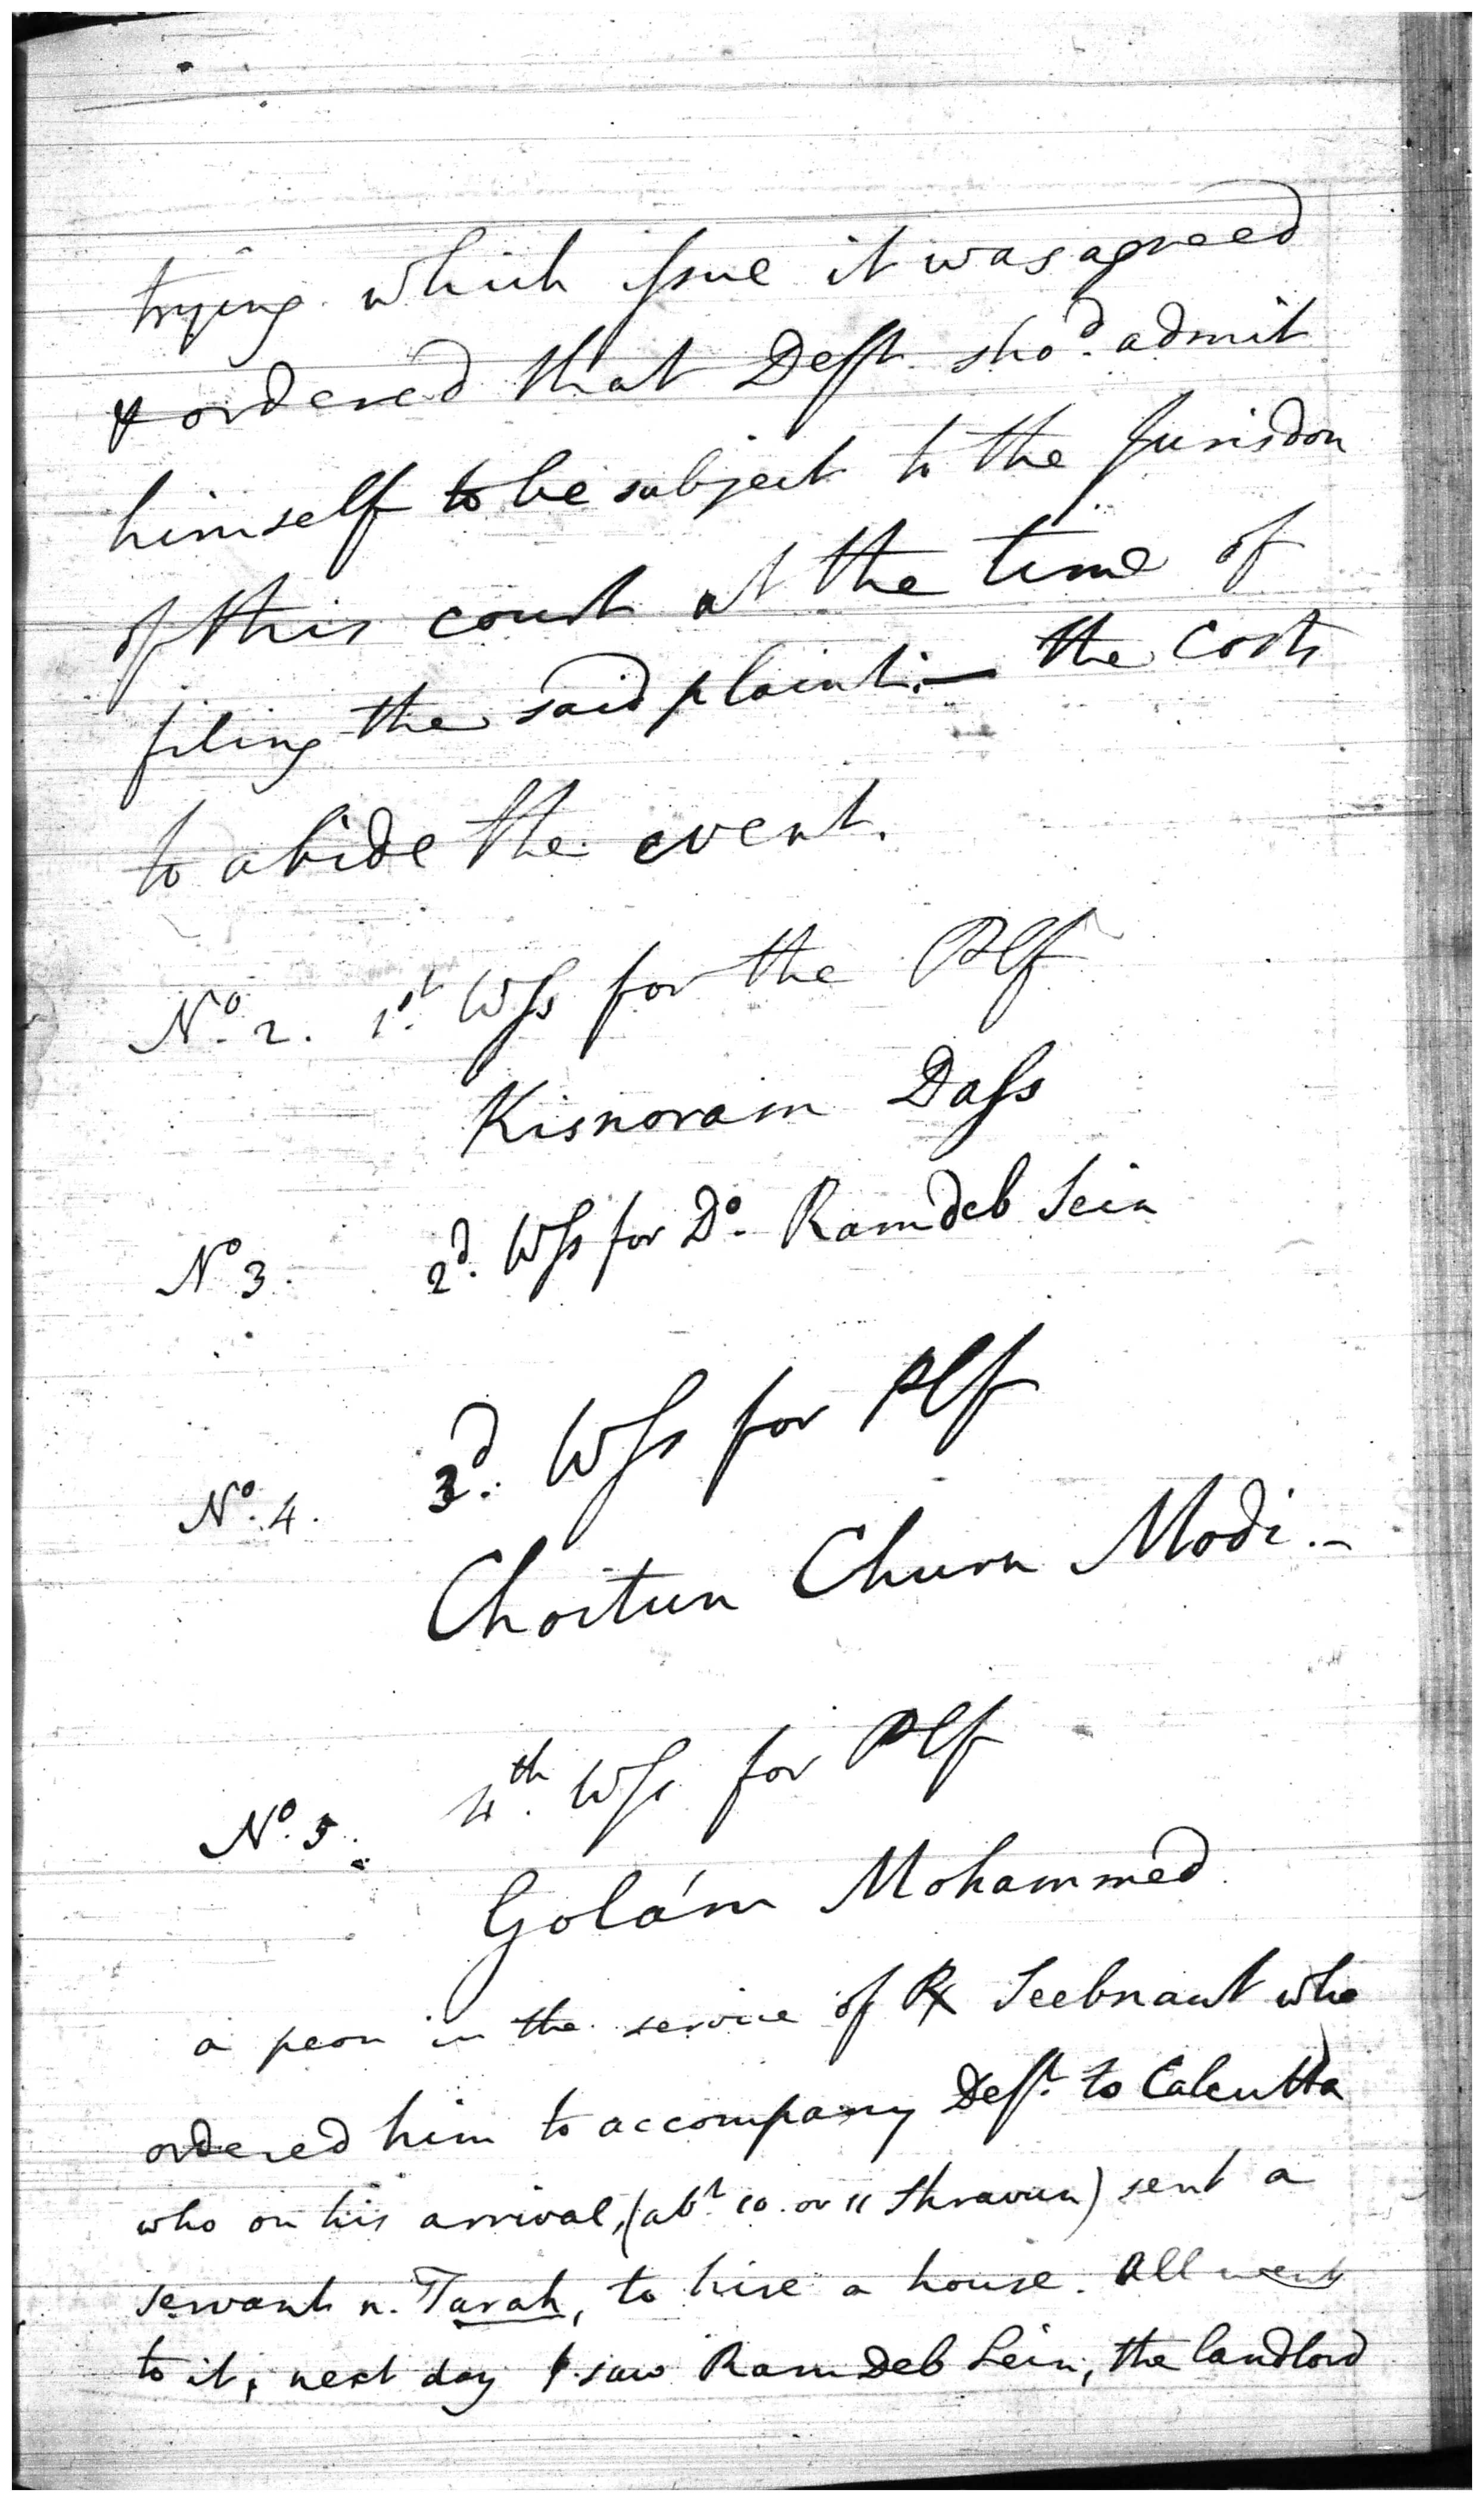 trying which Issue it was agreed
& ordered that Deft sho.d admit
himself to be subject to the Jurisdon
of this court at the time of
filing the said plaint:— the costs
to abide the event.
No. 2. 1st. Wss for the Plf
Kisnoram Dass
No 3. 2d. Wss for Do. Ramdeb Sein
3d. Wss for Plf
No. 4.
Choitun Churn Modi.—
4th. Wss for Plf
No. 5.
Golám Mohammed
a peon in the service of Seebnaut who
ordered him to accompany Deft. to Calcutta
who on his arrival, (abt. 10 or 11 Shravun) sent a
servant n. Tarah, to hire a house. All went
to it, next day I saw Ram Deb Sein, the landlord